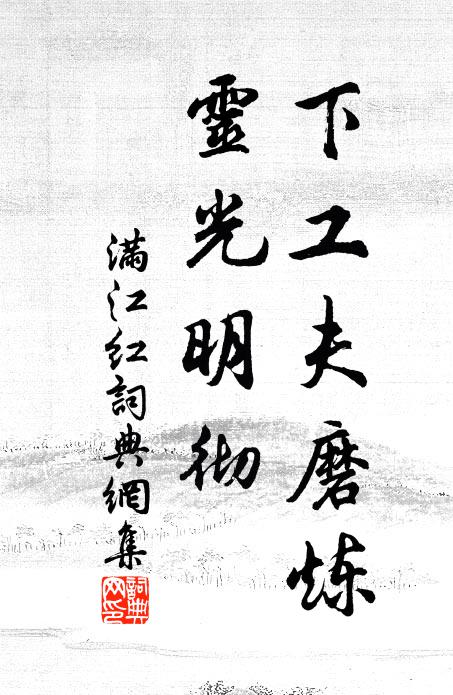 下工夫磨炼
靈光明彻
满江红詞典網集
詞典
网印